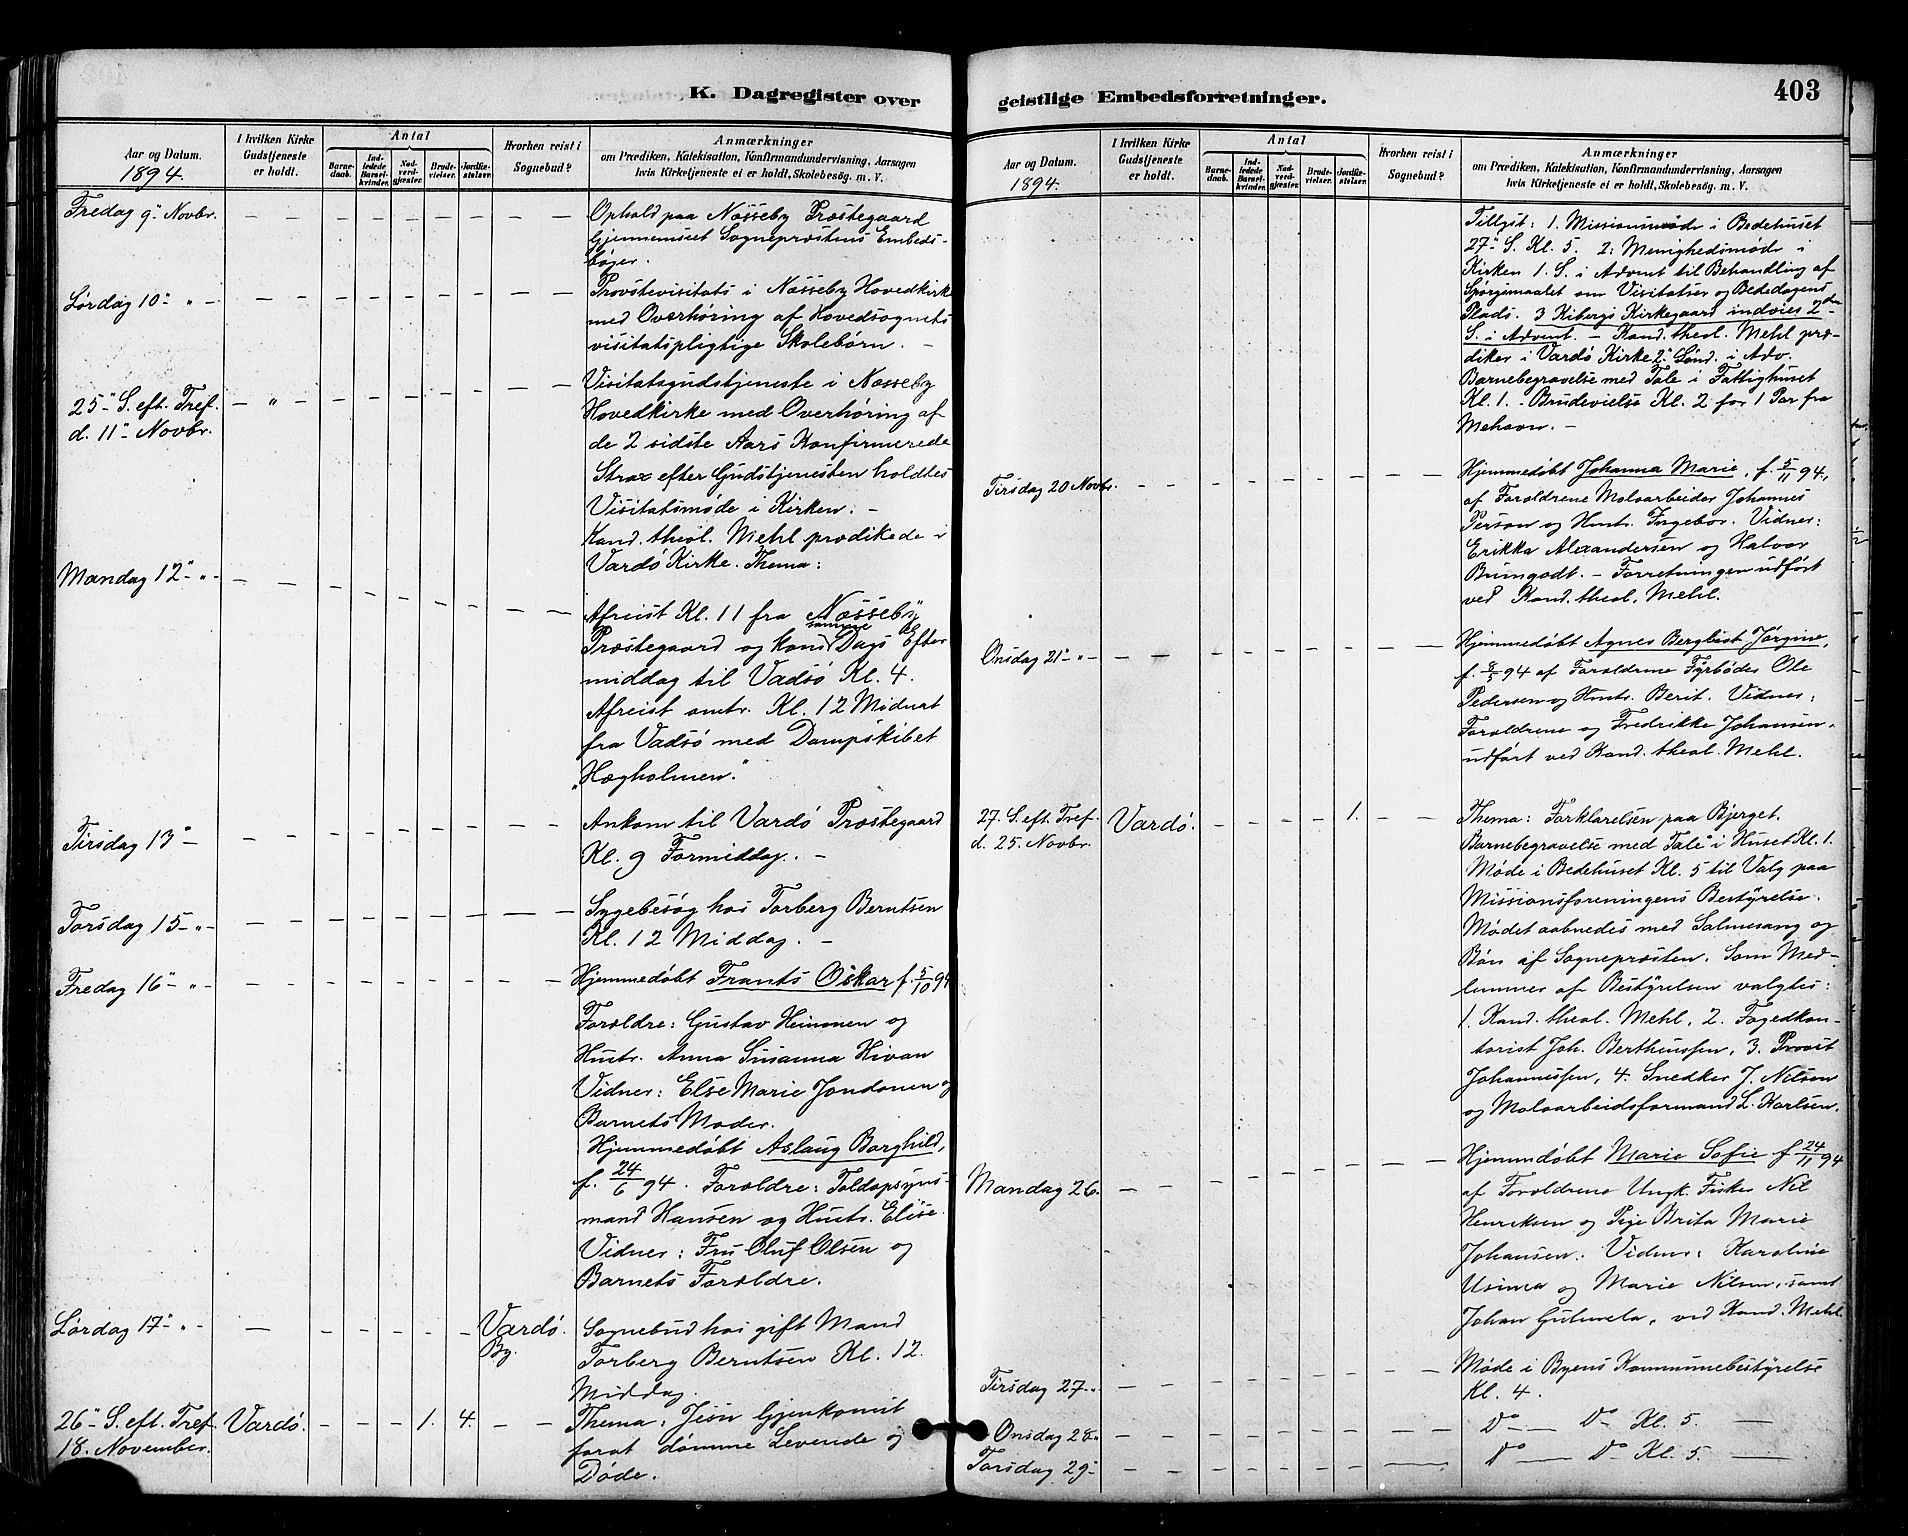 K. Dagregister over
Aar og Datum.
1894.
I hvilken Kirke Gudstjeneste er holdt.
Antal
Barnedaab.
Indledede Barselkvinder.
Nadverdgjester.
Brudevielser.
Jordfæstelser.
Hvorhen reist i Sognebud?
Anmærkninger
om Prædiken, Katekisation, Konfirmandundervisning, Aarsagen
hvis Kirketjeneste ei er holdt, Skolebesøg. m. V.
Fredag 9" Novbr. — — — — — — — — —
Ophold paa Næsseby Præstegaard
Gjennemseet Sognepræstens Embeds-
bøger.
Lørdag 10" „ — — — — — — — — —
Provstevisitats i Næsseby Hovedkirke
med Overhøring af Hovedsognets
visitatspligtige Skolebørn. —
25" S. eft. Tref. — „ — — — — — — — —
d. 11" Novbr.
Visitatsgudstjeneste i Næsseby
Hovedkirke med Overhøring af
de 2 sidste Aars Konfirmerede
Strax efter Gudstjenesten holdtes
Visitatsmøde i Kirken. —
Kand. theol. Mehl prædikede i
Vardø Kirke. Thema:
Mandag 12" „ — — — — — — — — —
Afreist Kl. 11 fra Næsseby
Præstegaard og kom samme Dags Efter
middag til Vadsø Kl. 4.
Afreist omtr. Kl. 12 Midnat
fra Vadsø med Dampskibet
„Hægholmen."
Tirsdag 13" — — — — — — — — —
Ankom til Vardø Præstegaard
Kl. 9 Formiddag. —
Torsdag 15 „ — — — — — — — — —
Sygebesøg hos Torberg Berntsen
Kl. 12 Middag. —
Fredag 16" „ — — — — — — — — —
Hjemmedøbt Frants Oskar f. 5/10 94
Forældre: Gustav Heinonen og
Hustr. Anna Susanna Hivan
Vidner: Else Marie Jondonen og
Barnets Moder.
Hjemmedøbt Aslaug Borghild,
f. 24/6 94. Forældre: Toldopsyns-
mand Hansen og Hustr. Elise.
Vidner: Fru Oluf Olsen og
Barnets Forældre.
Lørdag 17" „ — — — — — — Vardø By.
Sognebud hos gift Mand
Torberg Berntsen Kl. 12.
Middag.
26" S. eft. Tref. Vardø. — — — 1. 4. — —
18. November.
Thema: Jesu Gjenkomst
forat dømme Levende og
Døde.
geistlige Embedsforretninger.
403
Aar og Datum.
1894.
I hvilken Kirke Gudstjeneste er holdt.
Antal
Barnedaab.
Indledede Barselkvinder.
Nadverdgjester.
Brudevielser.
Jordfæstelser.
Hvorhen reist i Sognebud?
Anmærkninger
om Prædiken, Katekisation, Konfirmandundervisning, Aarsagen
hvis Kirketjeneste ei er holdt, Skolebesøg. m. V.
Tillyst: 1. Missionsmøde i Bedehuset
27" S. Kl. 5 2: Menighedsmøde i
Kirken 1. S. i Advent til Behandling af
Spørgsmaalet om Visitatser og Bededagens
Plads. 3 Kibergs Kirkegaard indvies 2den
S. i Advent. — Kand. theol. Mehl præ-
diker i Vardø Kirke 2" Sønd. i Adv.
Barnebegravelse med Tale i Fattighuset
Kl. 1. — Brudevielse Kl. 2 for 1 Par fra
Mehavn. —
Tirsdag 20 Novbr. — — — — — — — — —
Hjemmedøbt Johanna Marie, f. 5/11 94,
af Forældrene Moloarbeider Johannes
Person og Hustr. Ingebor. Vidner:
Erikka Alexandersen og Halvor
Bumgodt. — Forretningen udført
ved Kand. theol. Mehl.
Onsdag 21" „ — — — — — — — — —
Hjemmedøbt Agnes Bergliot Jørgine,
f. 94 af Forældrene Fyrbøder Ole
Pedersen og Hustr. Berit. Vidner:
Forældrene og Fredrikke Johansen.
udført ved Kand. theol. Mehl.
27. S. eft. Tref. Vardø. — — — — 1. — —
d. 25. Novbr.
Thema: Forklarelsen paa Bjerget.
Barnebegravelse med Tale i Huset Kl. 1.
Møde i Bedehuset Kl. 5 til Valg paa
Missionsforeningens Bestyrelse.
Mødet aabnedes med Salmesang og
Bøn af Sognepræsten. Som Med-
lemmer af Bestyrelsen valgtes:
1. Kand. theol. Mehl, 2. Fogedkon-
torist Joh. Bertheussen, 3. Provst
Johannessen, 4. Snedker J. Nilsen
og Moloarbeidsformand L. Karlsen.
Mandag 26. — — — — — — — — —
Hjemmdøbt Marie Sofie f 24/11 94
af Forældrene Ungk. Fisker Nil
Henriksen og Pige Brita Marie
Johansen. Vidner: Karoline
Usima og Marie Nilsen, samt
Johan , ved Kand. Mehl.
Tirsdag 27 „ — — — — — — — — —
Møde i Byens Kommunebestyrelse
Kl. 4.
Onsdag 28 „ — — — — — — — — —
Do — Do Kl. 5. —
Torsdag 29 — — — — — — — — —
Do — Do Kl. 5. —